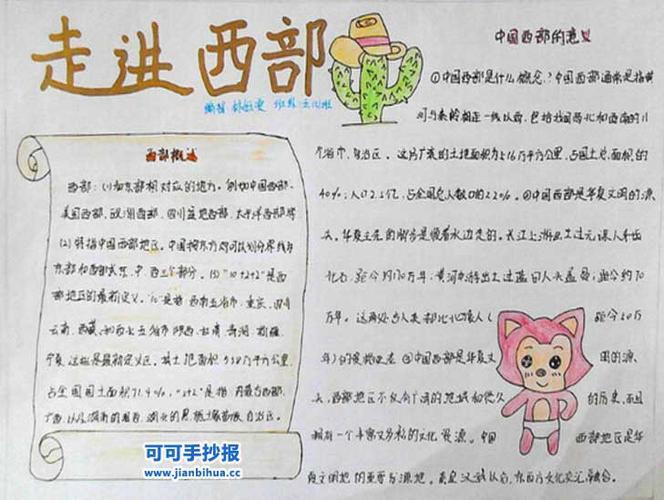 走进西部
编辑 班级
西部概述
西部：(1)和东部相对应的地方。例如中国西部、
美国西部、欧洲西部、四川盆地西部、太平洋西部等
(2) 特指中国西部地区。中国按东方
东部和西部 中、西三个部分。(3) "10+2+2"是西
部地区的最新定义。指西南五省市：重庆、四川
云南、西藏、和西北五省市陕西、甘肃、青海、新疆、
宁夏 定义区。其土地面积538万平方公里
占全国国土面积71.4%，"2+2"是指：内蒙古西部、
广西、以及湖南的湘西、湖北的恩施 自治区。
中国西部的意义
①中国西部是什么概念？中国西部通常是指黄
河与秦岭相连一线以西，包括我国西北和西南的11
个省市、自治区。这片广袤的土地面积为 万平方公里，占国土总面积的
%；人口2.3亿，占全国总人数口的22%。②中国西部是华夏文明的源
头。华夏文化的脚步是顺着水边走的。长江上游出土过元谋人牙齿
化石，距今约170万年；黄河中游出土过蓝田人头盖骨；距今约70
万年。这两处古人类都比北京人( 距今50万
年) ③中国西部是华夏文 明的源
头，西部地区不仅有广阔的地域和悠久 的历史，而且
拥有一个丰富文多彩的文化资源。中国 西部地区是华
夏文明地的重要发源地。秦皇汉武以后，东西方文化交汇融合。
可可手抄报
www.jianbihua.cc